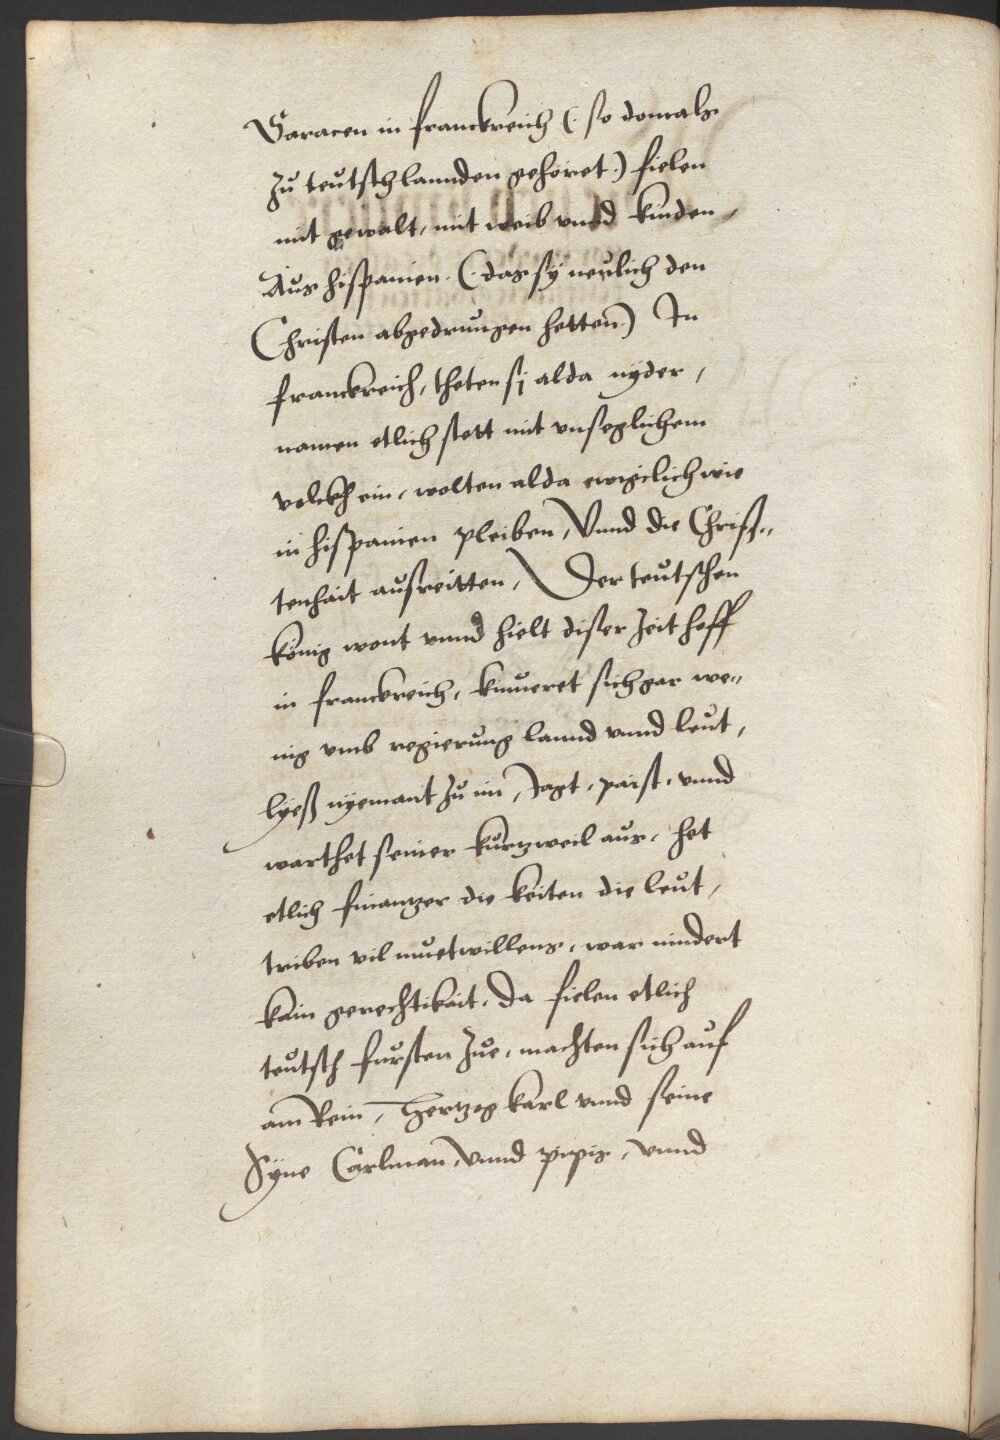 Saracen in franckreich (: so domals
zu teutschlannden gehöret :) fielen
mit gewalt, mit weib vnnd kinden,
Aus hispanien. (: das sy neulich den
Christen abgedrungen hetten :) In
franckreich, theten si alda nyder,
namen etlich stett mit vnseglichem
volckh ein, wolten alda ewigclich wie
in hispanien pleiben, Vnnd die Chris=
tenhait ausreitten, Der teutschen
könig wont vnnd hielt diser Zeit hoff
in franckreich, kuueret sich gar we=
nig vmb regierung lannd vnnd leut,
lyeß nyemant zu im, Jagt, paist, vnnd
warthet seiner kurtzweil aus, het
etlich finantzer die keiten die leut,
triben vil muetwillens, war nindert
kain gerechtikait. Da fielen etlich
teutsch fursten zue, machten sich auf
am Rein, Hertzog karl vnnd seine
Syne Carlman, Vnnd pipis, vnnd